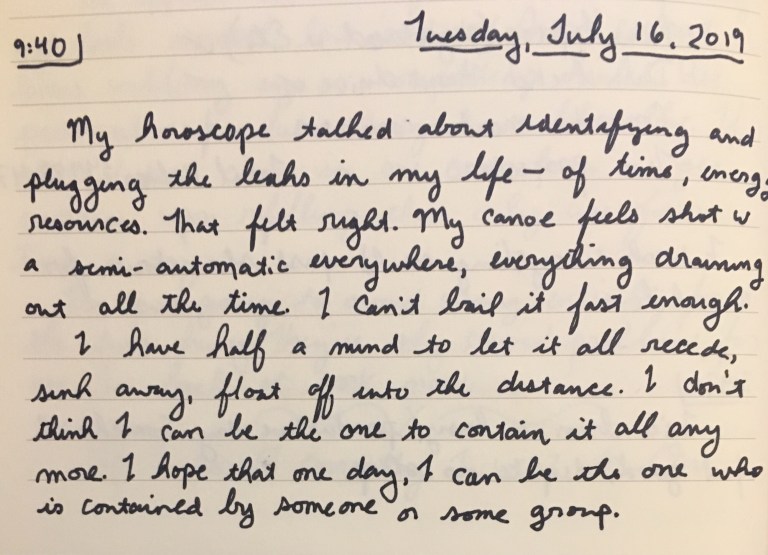 9:40 Tuesday, July 16, 2019
My horoscope talked about identifying and
plugging the leaks in my life – of time, energ
resources. That felt right. My canoe feels shot w
a semi-automatic everywhere, everything draining
out all the time. I can't bail it fast enough.
I have half a mind to let it all recede,
sink away, float off into the distance. I don't
think I can be the one to contain it all any
more. I hope that one day, I can be the one who
is contained by someone or some group.